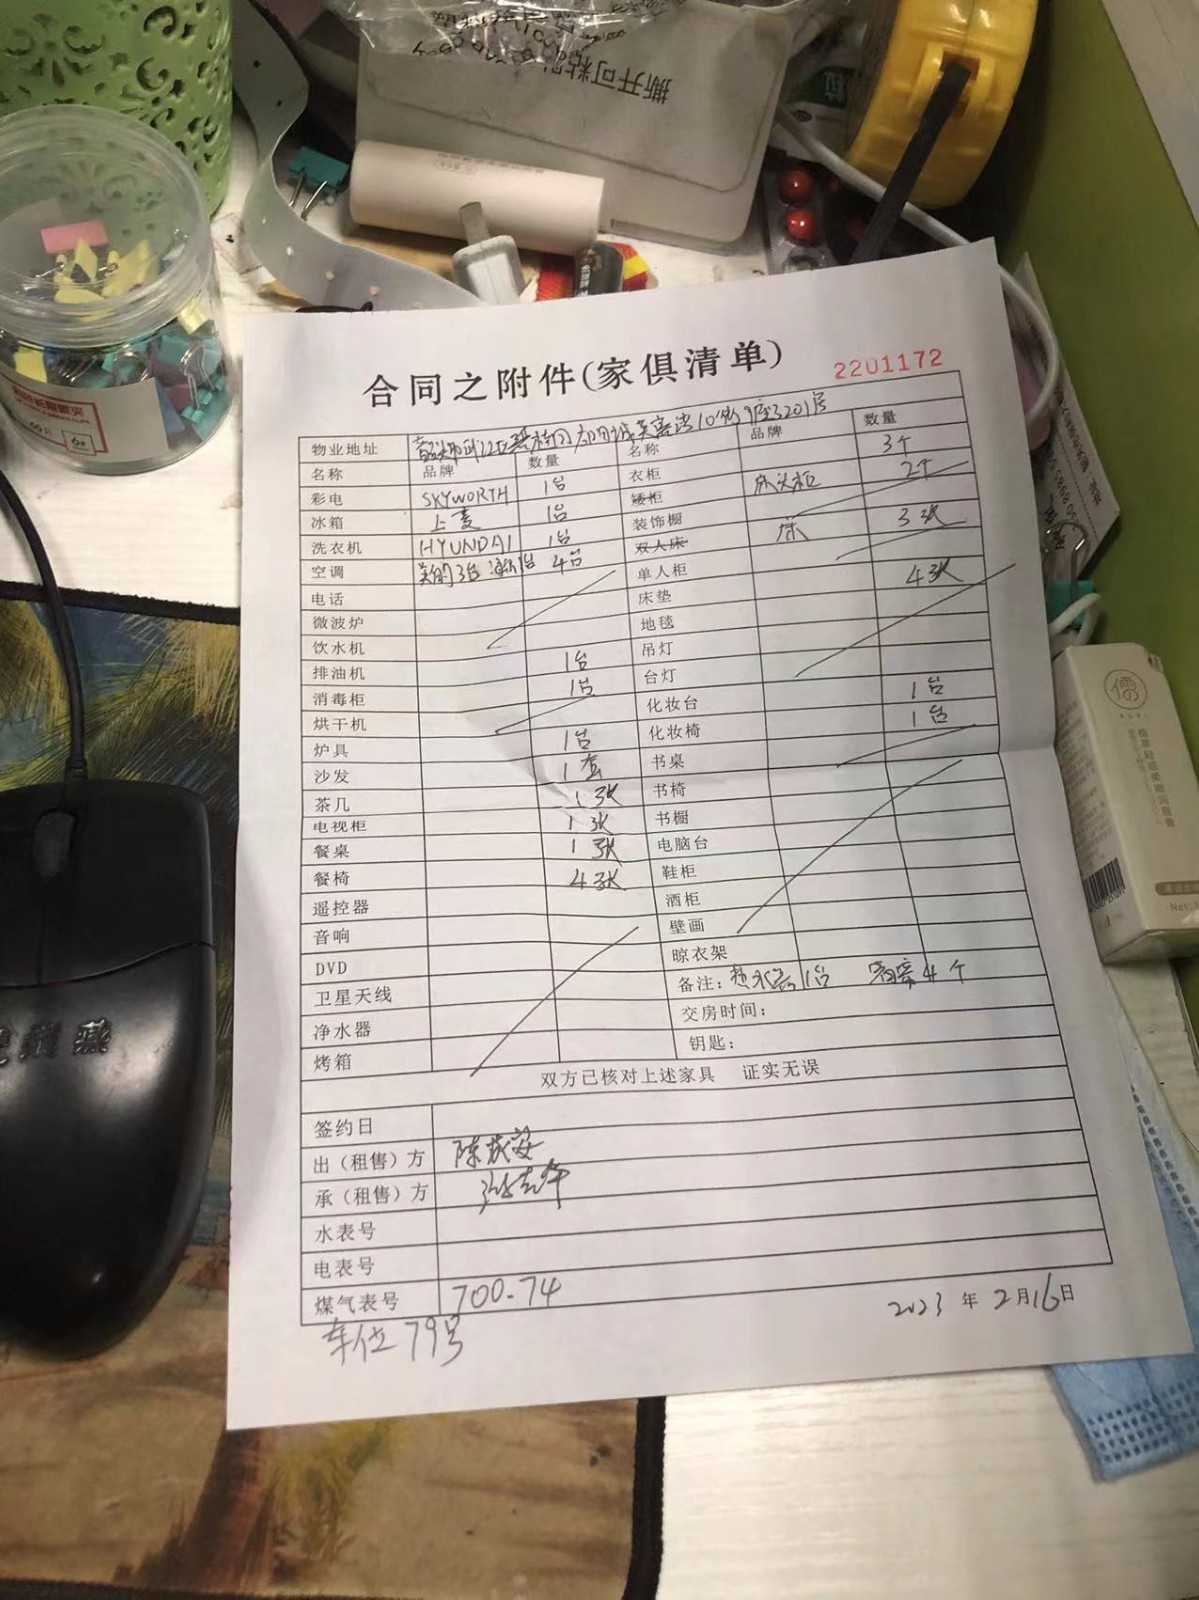 撕开可粘贴
合同之附件(家俱清单)
2201172
物业地址 10街 座3201房
名称 品牌 数量 名称 品牌 数量
彩电 SKYWORTH 1台 衣柜 3个
冰箱 上菱 1台 矮柜 床头柜 2个
洗衣机 HYUNDAI 1台 装饰橱
空调 美的3台 1台 4台 双人床 床 3张
电话 单人柜
微波炉 床垫 4张
饮水机 地毯
排油机 1台 吊灯
消毒柜 1台 台灯
烘干机 化妆台 1台
炉具 1台 化妆椅 1台
沙发 1套 书桌
茶几 1张 书椅
电视柜 1张 书橱
餐桌 1张 电脑台
餐椅 4张 鞋柜
遥控器 酒柜
音响 壁画
DVD 晾衣架
卫星天线 备注：热水器1台 窗帘4个
净水器 交房时间：
烤箱 钥匙：
双方已核对上述家具 证实无误
签约日
出（租售）方
承（租售）方
水表号
电表号
煤气表号 700.74
2023 年 2月16日
车位79号
儒